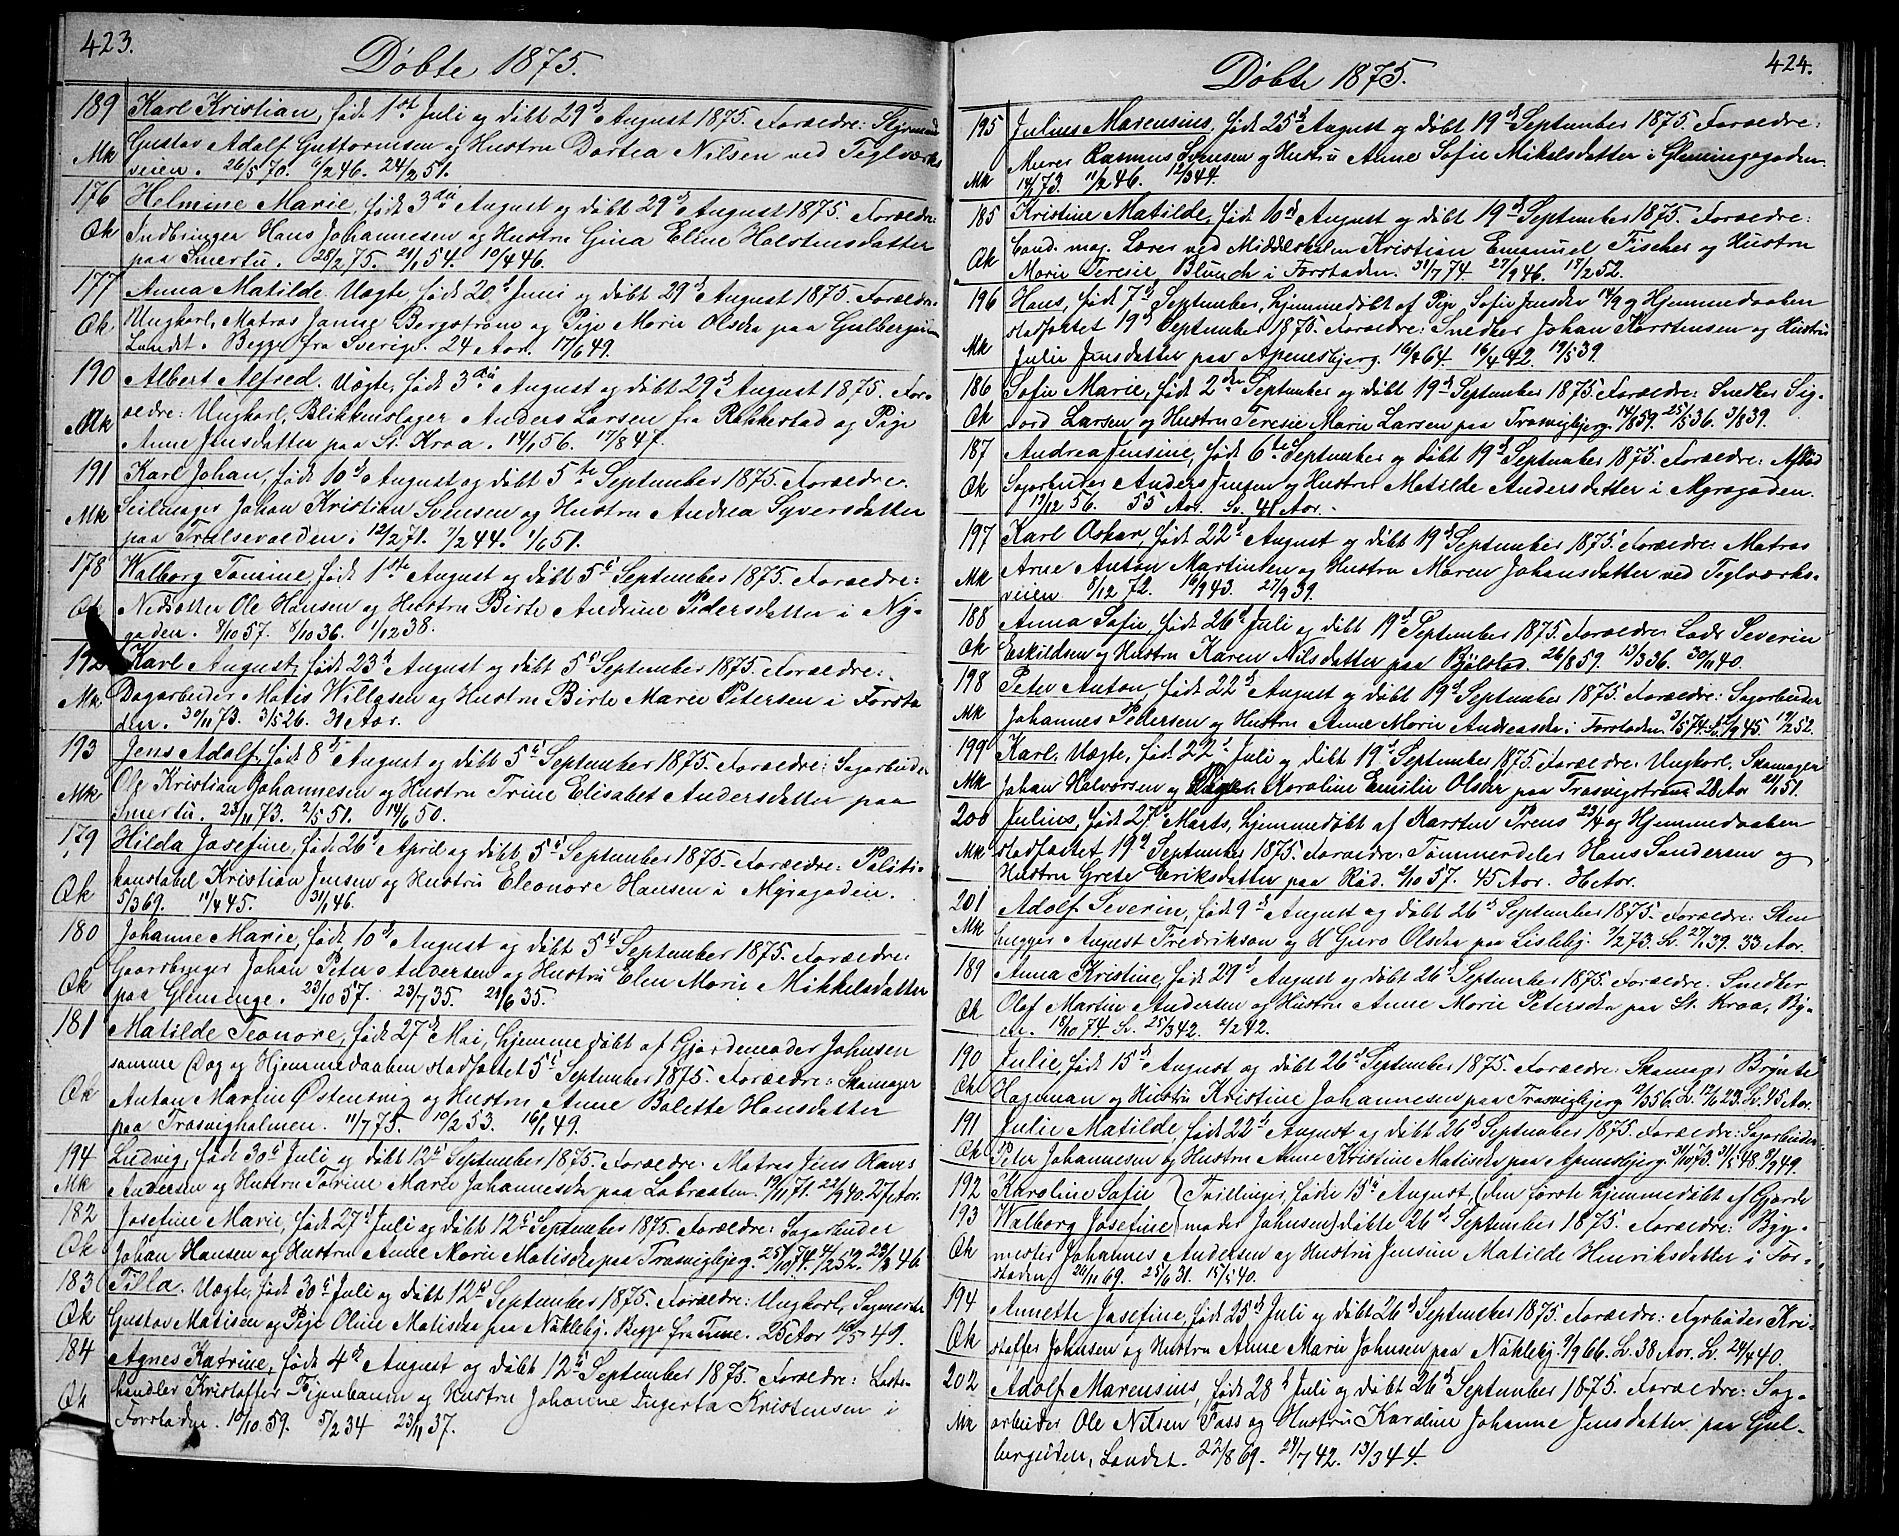 423.
Døbte 1875.
189 Karl Kristian, født 1ste Juli og døbt 29d August 1875. Forældre: Styrmand
Mk Gustav Adolf Guttormsen og Hustru Dortea Nilsen ved Teglværks
veien. 26/5 70. 6/2 46. 24/2 51.
176 Helmine Marie, født 3die August og døbt 29d August 1875. Forældre:
Qk Indbringer Hans Johannesen og Hustru Gina Eline Holstensdatter
paa Smertu. 28/2 75. 21/1 54. 10/4 46.
177 Anna Matilde. Uægte, født 20d Juni og døbt 29d August 1875. Forældre:
Qk Ungkarl, Matros Janne Bergstrøm og Pige Marie Olsdtr paa Gulbergsiden
Landet. Begge fra Sverige. 24 Aar. 17/6 49.
190 Albert Alfred. Uægte, født 3die August og døbt 29d August 1875. For-
Mk ældre: Ungkarl, Blikkenslager Anders Larsen fra Rakkestad og Pige
Anne Jensdatter paa St. Kroa. 14/1 56. 17/8 47.
191 Karl Johan, født 10d August og døbt 5te September 1875. Forældre.
Mk Seilmager Johan Kristian Svensen og Hustru Andrea Syversdatter
paa Trulsevolden. 12/2 71. 7/2 44. 1/6 51.
178 Walborg Tomine, født 1ste August og døbt 5t September 1875. Forældre:
Qk Nedsætter Ole Hansen og Hustru Birte Andrine Pedersdatter i Ny-
gaden. 8/10 57. 8/10 36. 1/12 38.
192 Karl August, født 23d August og døbt 5t September 1875. Forældre:
Mk Dagarbeider Matis Willasen og Hustru Birte Marie Petersen i Forsta
den. 30/11 73. 3/5 26. 31 Aar.
193 Jens Adolf, født 8d August og døbt 5t September 1875. Forældre: Sagarbeider
Mk Ole Kristian Johannesen og Hustru Trine Elisabet Andersdatter paa
Smertu. 23/11 73. 2/5 51. 14/6 50.
179 Hilda Josefine, født 26d April og døbt 5t September 1875. Forældre: Politi-
Qk konstabel Kristian Jensen og Hustru Eleonore Hansen i Myragaden.
5/3 69. 11/4 45. 31/1 46.
180 Johanne Marie, født 10d August og døbt 5t September 1875. Forældre:
Qk Gaardbruger Johan Peter Andersen og Hustru Elen Marie Mikkelsdatter
paa Glemminge. 23/10 57. 23/7 35. 21/6 35.
181 Matilde Teonore, født 27d Mai, hjemmedøbt af Gjordemoder Johnsen
samme Dag og Hjemmedaaben stadfæstet 5t September 1875. Forældre: Skomager
Qk Anton Martin Østensvig og Hustru Anne Bolette Hansdatter
paa Trosvigholmen. 11/7 75. 10/2 53. 16/1 49.
194 Ludvig, født 30d Juli og døbt 12t September 1875. Forældre: Matros Jens Haves
Mk Andersen og Hustru Torine Marie Johannesdtr paa Labraaten. 19/11 71. 22/9 40. 27 Aar.
182 Josefine Marie, født 27d Juli og døbt 12t September 1875. Forældre: Sagarbeider
Qk Johan Hansen og Hustru Anne Marie Matisdtr paa Trosvigbjerg. 25/10 74. 4/2 52. 23/3 46.
183 Tilla. Uægte, født 30d Juli og døbt 12t September 1875. Forældre: Ungkarl,
Qk Gustav Matisen og Pige Oline Matisdtr paa Nåkleby. Begge fra Tune. 25 Aar 10/5 49.
184 Agnes Katrine, født 4d August og døbt 12t September 1875. Forældre: Last-
Qk handler Kristoffer Figenbaum og Hustru Johanne Ingerta Kristensen i
Forstaden. 10/10 59. 5/2 34 23/11 37.
424.
Døbte 1875.
195 Julius Marensius, født 25d August og døbt 19d September 1875. Forældre:
Mk Murer Rasmus Svensen og Hustru Anne Sofie Mikalsdatter i Glemmingegaden.
14/1 73. 11/2 46. 12/3 44.
185 Kristine Matilde, født 10d August og døbt 19d September 1875. Forældre:
Qk Cand. mag. Lærer ved Middelskolen Kristian Emanuel Fischer og Hustru
Marie Teresie Blünch i Forstaden. 31/7 74. 27/9 46. 17/2 52.
196 Hans, født 7d September, hjemmedøbt af Pige Sofie Jensdtr 14/9 og Hjemmedaaben
stadfæstet 19d September 1875. Forældre: Snedker Johan Karstensen og Hustru
Mk Julie Jensdatter paa Apenesbjerg. 16/7 64. 16/4 42. 19/5 39.
186 Sofie Marie, født 2den September og døbt 19d September 1875. Forældre: Snedker Sig-
Qk vard Larsen og Hustru Teresie Marie Larsen paa Trosvigbjerg. 14/8 59. 25/5 36. 3/8 39.
187 Andrea Jensine, født 6te September og døbt 19d September 1875. Forældre: Afdød
Qk Sagarbeider Anders Jensen og Hustru Matilde Andersdatter i Myragaden.
12/12 56. 55 Aar. Sv. 41 Aar.
197 Karl Oskar, født 22d August og døbt 19d September 1875. Forældre: Matros
Mk Arne Anton Martinsen og Hustru Maren Johansdatter ved Teglværks-
veien 8/12 72. 16/9 43. 27/9 39.
188 Anna Sofie, født 26d Juli og døbt 19d September 1875. Forældre: Lods Severin
Qk Eskildsen og Hustru Karen Nilsdatter paa Bjølstad. 26/8 59. 13/3 36. 30/11 40.
198 Peter Anton, født 22d August og døbt 19d September 1875. Forældre: Sagarbeider
Mk Johannes Pedersen og Hustru Anne Marie Andreasdtr i Forstaden. 3/5 74. 21/9 45. 19/2 52.
199 Karl. Uægte, født 22d Juli og døbt 19d September 1875. Forældre: Ungkarl, Skomager
Mk Johan Halvorsen og Pige Karoline Emilie Olsdtr paa Trosvigstrand 28 Aar 21/1 51.
200 Julius, født 27d Marts, hjemmedøbt af Karsten Prens 23/4 og Hjemmedaaben
Mk stadfæstet 19d September 1875. Forældre: Tømmerdeler Hans Sandersen og
Hustru Grete Eriksdatter paa Rød. 6/10 57. 45 Aar. 36 Aar.
201 Adolf Severin, født 9d August og døbt 26d September 1875. Forældre: Sten
Mk hugger August Fredrikson og H Guro Olsdtr paa Lisleby. 7/2 73. Sv. 27/1 39. 33 Aar.
189 Anna Kristine, født 29d August og døbt 26d September 1875. Forældre: Snedker
Qk Olaf Martin Andersen og Hustru Anne Marie Petersdtr paa St. Kroa, By-
en. 18/10 74. Sv. 25/3 42. 4/2 42.
190 Julie, født 15d August og døbt 26d September 1875. Forældre: Skomager Brynte
Qk Hagman og Hustru Kristine Johannesen paa Trosvigbjerg 12/3 56. Sv. 12/6 23. Sv. 45 Aar.
191 Julie Matilde, født 22d August og døbt 26d September 1875. Forældre: Sagarbeider
Qk Peter Johannesen og Hustru Anne Kristine Matisdtr paa Apenesbjerg. 31/10 73. 31/5 48. 8/9 49.
192 Karoline Sofie (Tvillinger, fødte 15d August, (den første hjemmedøbt af Gjorde
193 Walborg Josefine (moder Johnsen) døbte 26d September 1875. Forældre: Byg-
Qk mester Johannes Andersen og Hustru Jensine Matilde Henriksdatter i For-
staden. 26/11 69. 25/6 31. 15/5 40.
194 Annette Josefine, født 25d Juli og døbt 26d September 1875. Forældre: Fyrbøder Kri-
Qk stoffer Johnsen og Hustru Anne Marie Johnsen paa Nåkleby. 9/9 66. Sv. 38 Aar. Sv. 24/4 40.
202 Adolf Marensius, født 28d Juli og døbt 26d September 1875. Forældre: Sag-
Mk arbeider Ole Nilsen Foss og Hustru Karoline Johanne Jensdatter paa Gul-
bergsiden, Landet. 22/8 69. 24/7 42. 13/3 44.